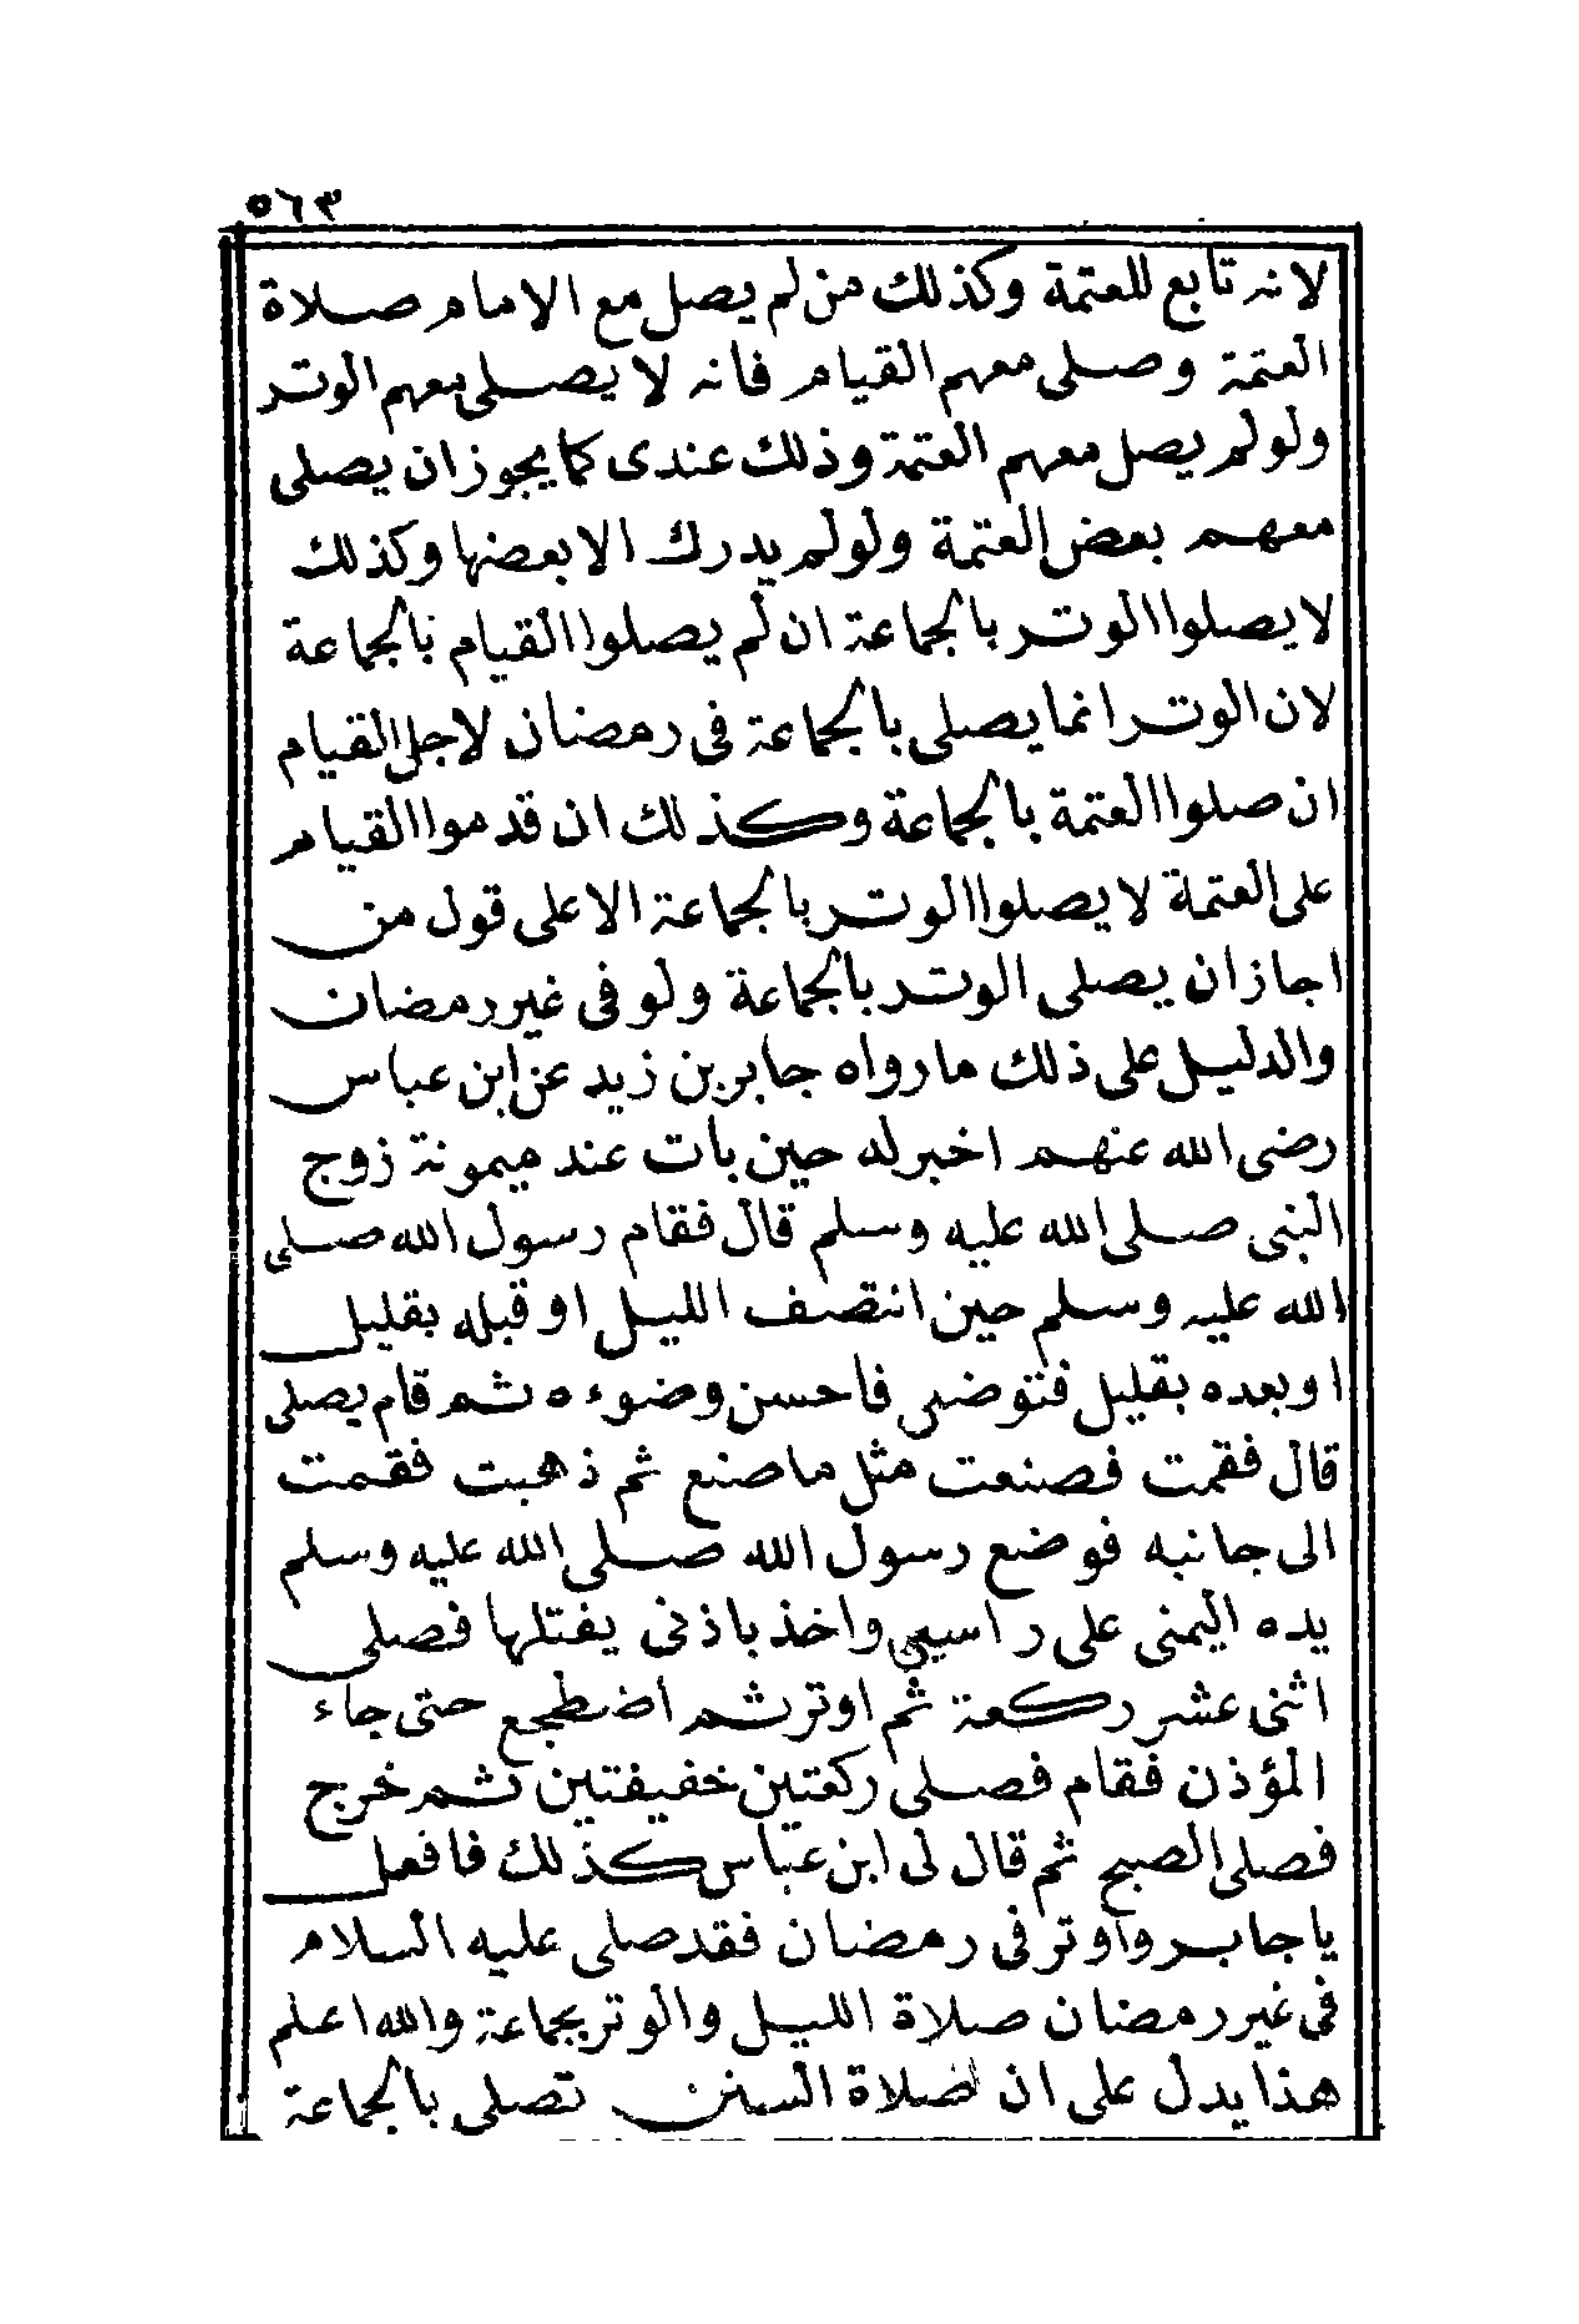 ٥٦٣
لانه تابع للعتمة وكذلك من لم يصل مع الامام صلاة
العتمة وصلى معهم القيام فانه لا يصلى معهم الوتر
ولو لم يصل معهم العتمة وذلك عندى كما يجوز ان يصلى
معهم بعض العتمة ولو لم يدرك الا بعضها وكذلك
لا يصلوا الوتر بالجماعة ان لم يصلوا القيام بالجماعة
لان الوتر انما يصلى بالجماعة فى رمضان لاجل القيام
ان صلوا العتمة بالجماعة وكذلك ان قدموا القيام
على العتمة لا يصلوا الوتر بالجماعة الا على قول من
اجاز ان يصلى الوتر بالجماعة ولو فى غير رمضان
والدليل على ذلك ما رواه جابر بن زيد عن ابن عباس
رضى الله عنهم اخبر له حين بات عند ميمونة زوج
النبى صلى الله عليه وسلم قال فقام رسول الله صلى
الله عليه وسلم حين انتصف الليل او قبله بقليل
او بعده بقليل فتوضى فاحسن وضوءه ثم قام يصلى
قال فقمت فصنعت مثل ما صنع ثم ذهبت فقمت
الى جانبه فوضع رسول الله صلى الله عليه وسلم
يده اليمنى على راسيى واخذ باذنى يفتلها فصلى
اثنى عشر ركعة ثم اوتر ثم اضطجع حتى جاء
المؤذن فقام فصلى ركعتين خفيفتين ثم خرج
فصلى الصبح ثم قال لى ابن عباس كذلك فافعل
يا جابر واوتر فى رمضان فقد صلى عليه السلام
فى غير رمضان صلاة الليل والوتر بجماعة والله اعلم
هذا يدل على ان صلاة السنن تصلى بالجماعة